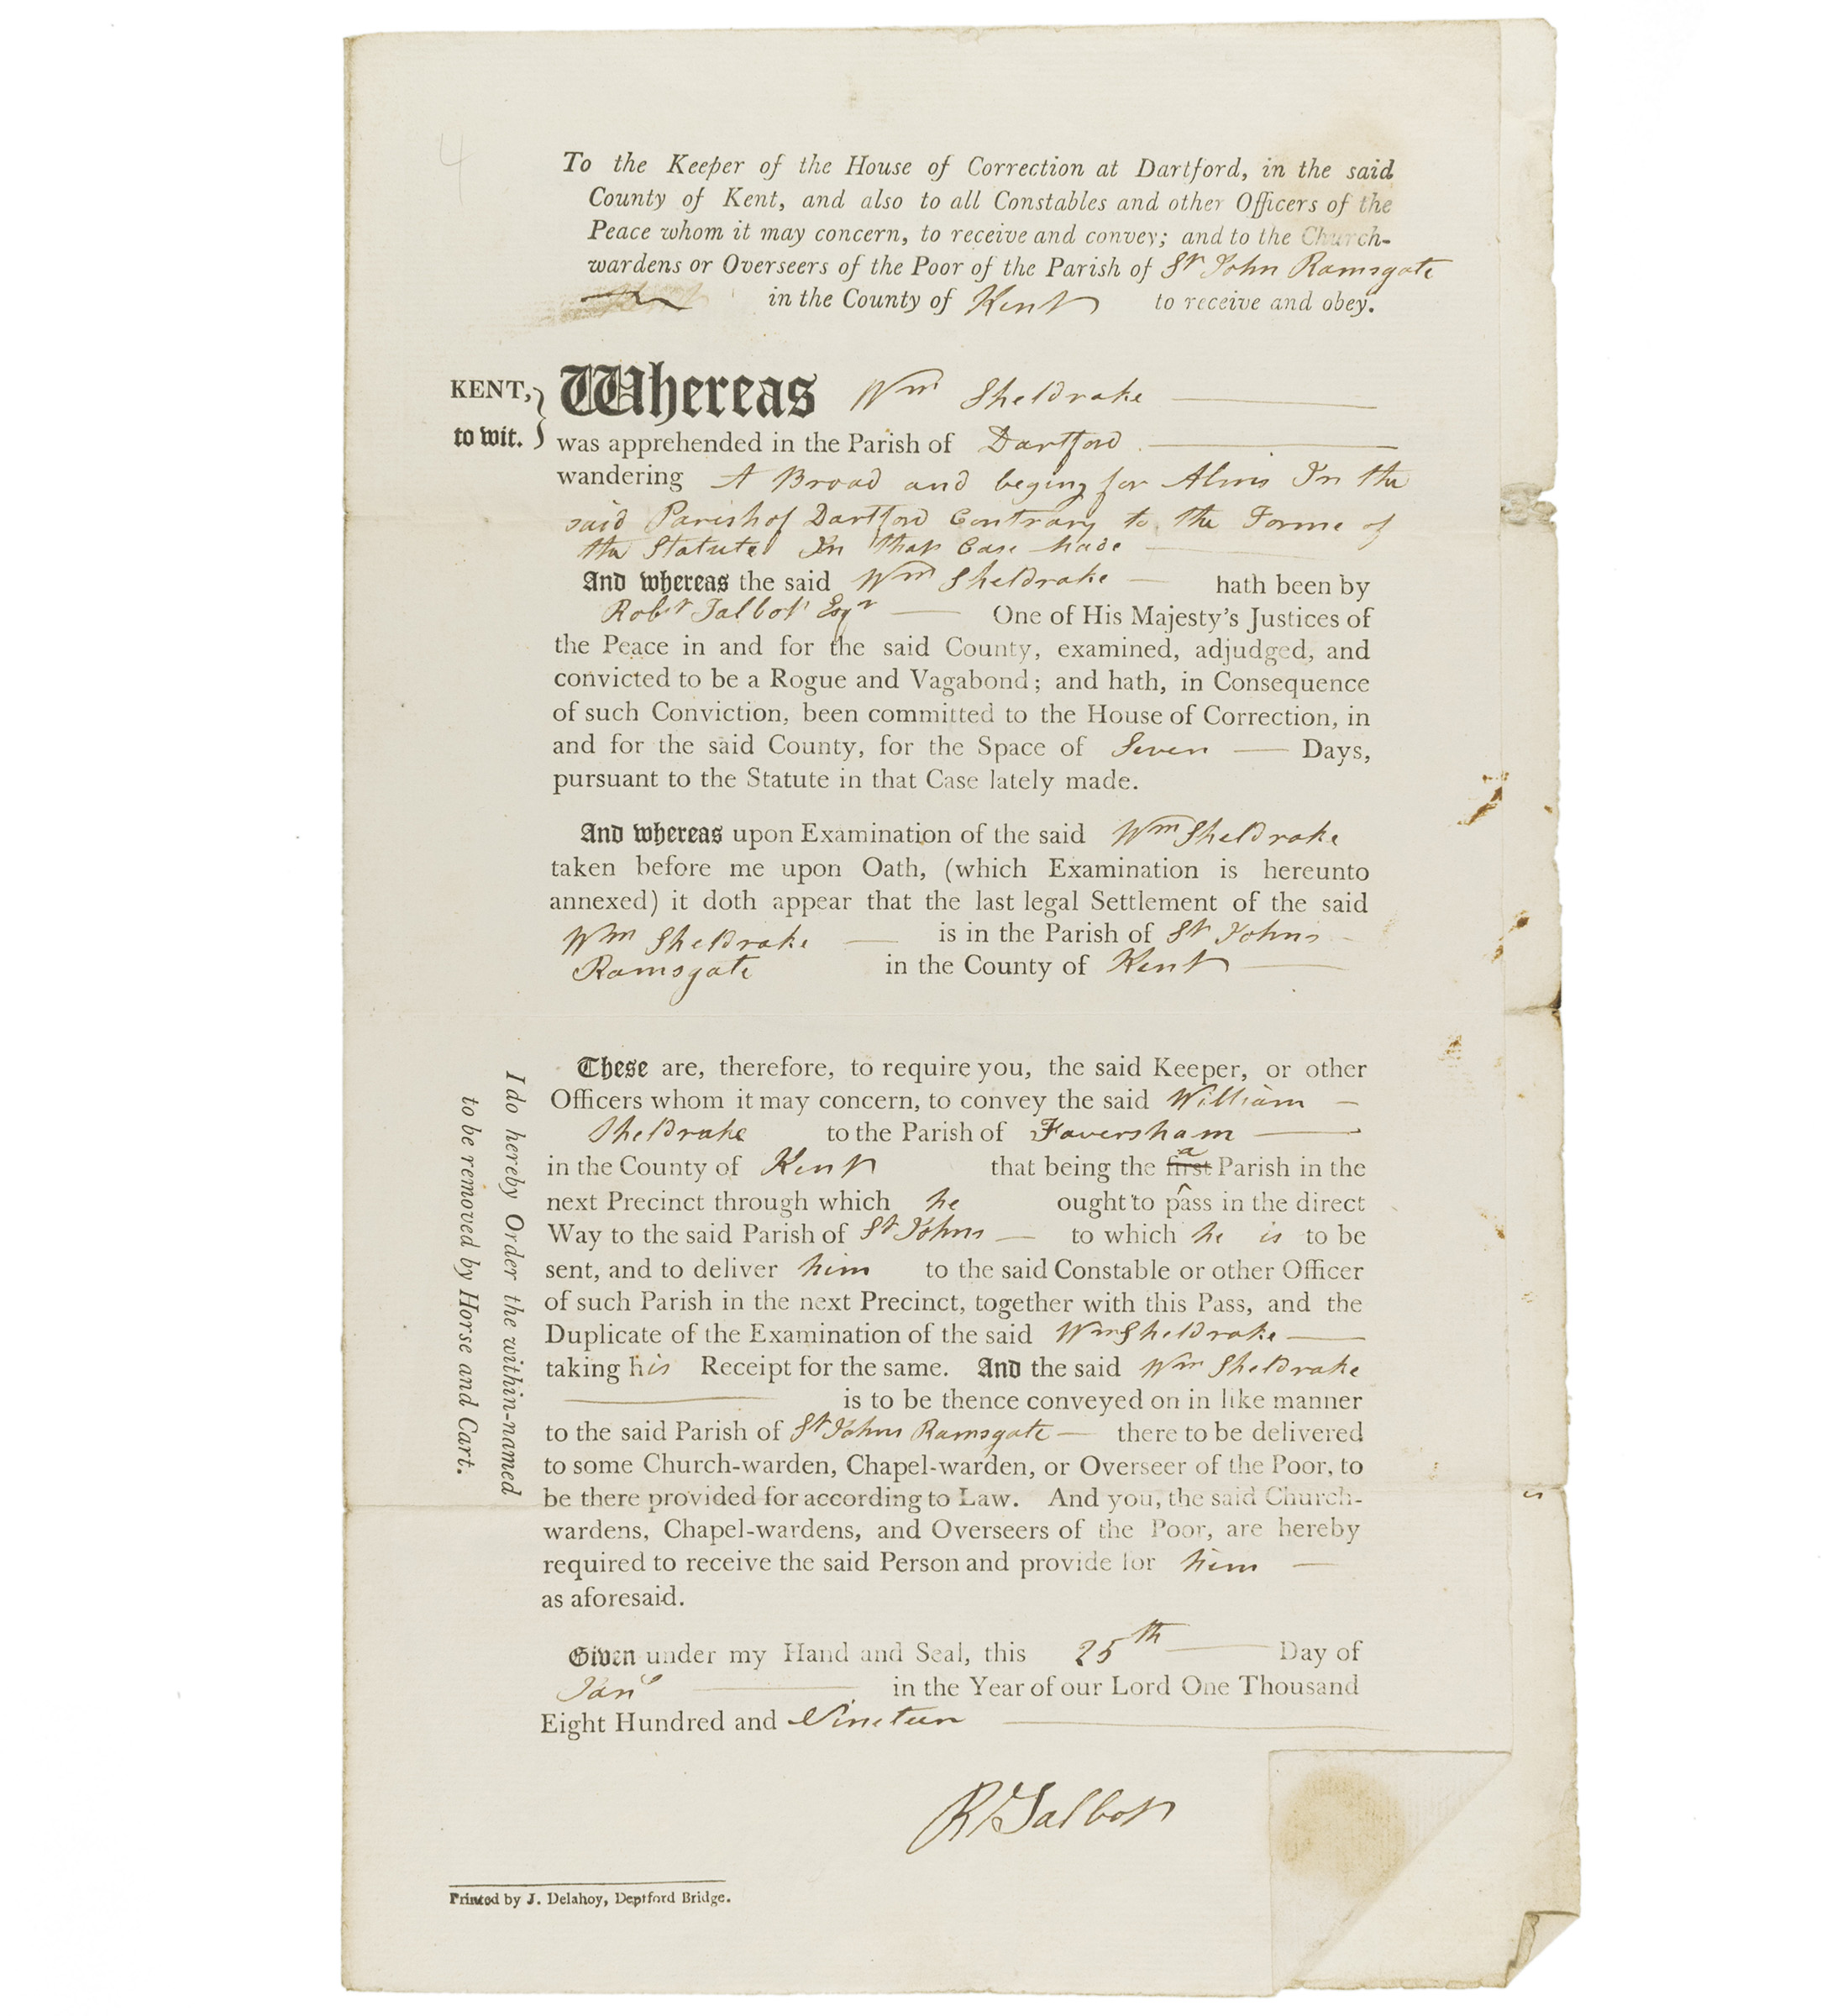 4
To the Keeper of the House of Correction at Dartford, in the said
County of Kent, and also to all Constables and other Officers of the
Peace whom it may concern, to receive and convey; and to the Church-
wardens or Overseers of the Poor of the Parish of St John Ramsgate
in the County of Kent to receive and obey.
KENT, to wit.
Whereas Wm Sheldrake
was apprehended in the Parish of Dartford
wandering A Broad and beging for Alms In the
said Parish of Dartford Contrary to the Forme of
the Statute In that Case made
And whereas the said Wm Sheldrake hath been by
Robt Talbot Esqr One of His Majesty's Justices of
the Peace in and for the said County, examined, adjudged, and
convicted to be a Rogue and Vagabond; and hath, in Consequence
of such Conviction, been committed to the House of Correction, in
and for the said County, for the Space of Seven Days,
pursuant to the Statute in that Case lately made.
And whereas upon Examination of the said Wm Sheldrake
taken before me upon Oath, (which Examination is hereunto
annexed) it doth appear that the last legal Settlement of the said
Wm Sheldrake is in the Parish of St Johns
Ramsgate in the County of Kent
These are, therefore, to require you, the said Keeper, or other
Officers whom it may concern, to convey the said William
Sheldrake to the Parish of Faversham
in the County of Kent that being the first a Parish in the
next Precinct through which he ought to pass in the direct
Way to the said Parish of St Johns to which he is to be
sent, and to deliver him to the said Constable or other Officer
of such Parish in the next Precinct, together with this Pass, and the
Duplicate of the Examination of the said Wm Sheldrake
taking his Receipt for the same. And the said Wm Sheldrake
is to be thence conveyed on in like manner
to the said Parish of St Johns Ramsgate there to be delivered
to some Church-warden, Chapel-warden, or Overseer of the Poor, to
be there provided for according to Law. And you, the said Church-
wardens, Chapel-wardens, and Overseers of the Poor, are hereby
required to receive the said Person and provide for him
as aforesaid.
I do hereby Order the within-named
to be removed by Horse and Cart.
Given under my Hand and Seal, this 25th Day of
Jany in the Year of our Lord One Thousand
Eight Hundred and Nineteen
R Talbot
Printed by J. Delahoy, Deptford Bridge.